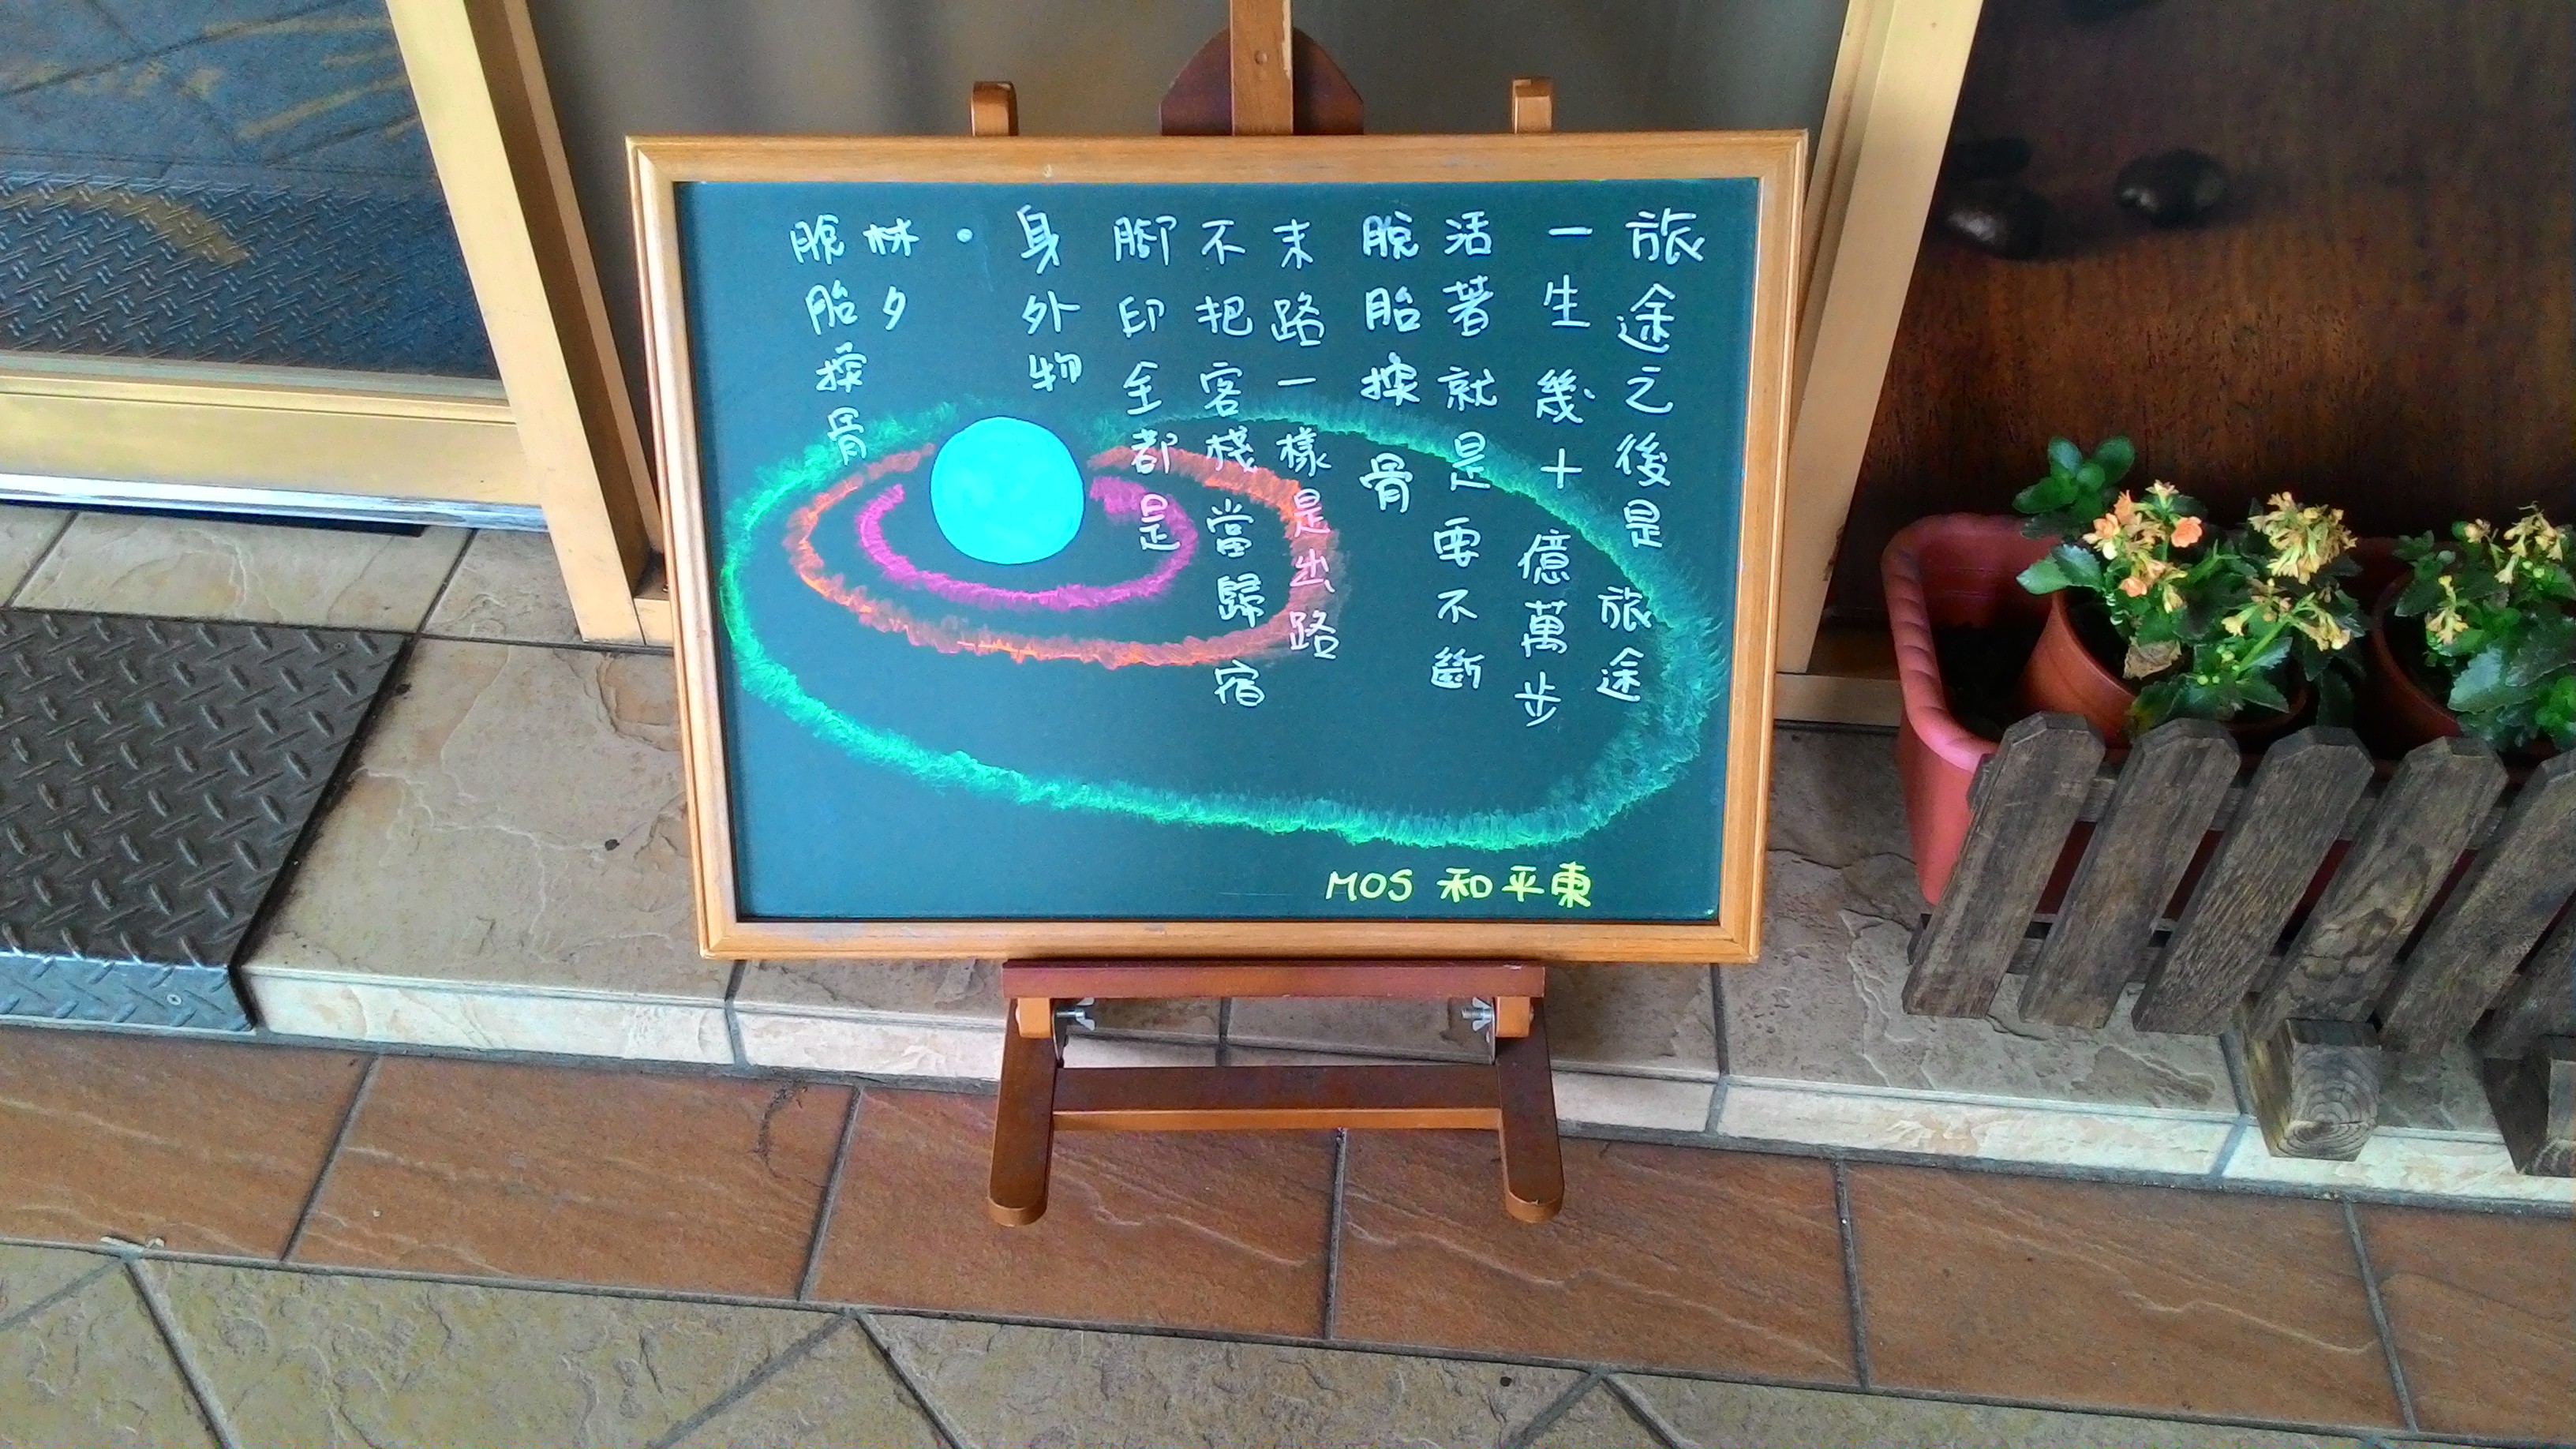 旅途之後是 旅途
一生幾十億萬步
活著就是要不斷
脫胎換骨
末路一樣是出路
不把客棧當歸宿
腳印全都是
身外物
•林夕
脫胎換骨
MOS 和平東